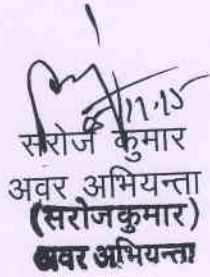 सरोज कुमार
अवर अभियन्ता
(सरोजकुमार)
अवर अभियन्ता